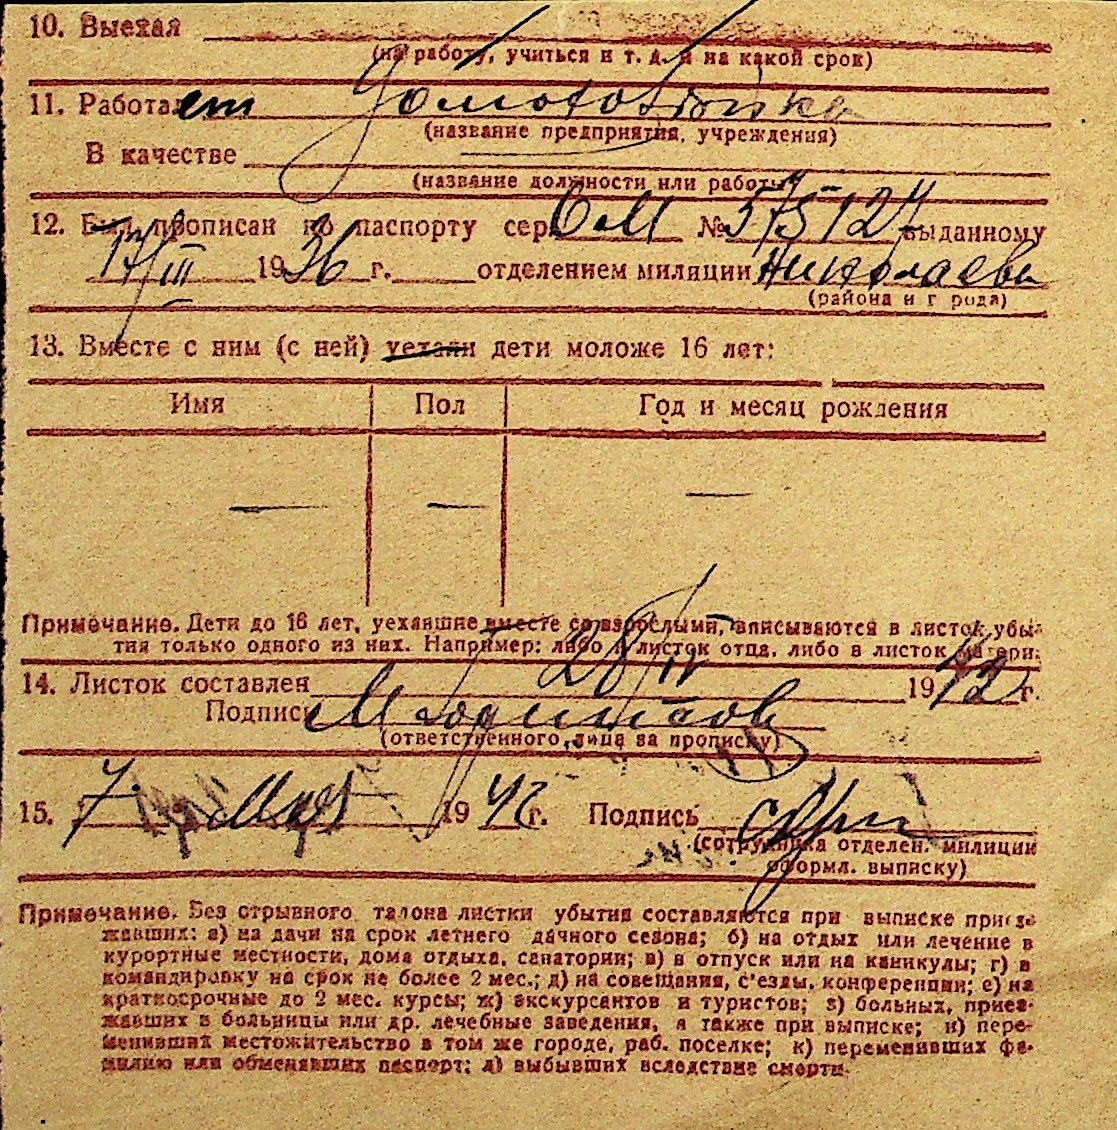 10. Выехал
(на работу, учиться и т. д. и на какой срок)
11. Работает Домохозяйка
(название предприятия, учреждения)
В качестве
(название должности или работы)
12. Был прописан по паспорту сер. № 575127 выданному
17/III 1936 г. отделением милиции Николаева
(района и города)
13. Вместе с ним (с ней) уехали дети моложе 16 лет:
Имя Пол Год и месяц рождения
— — —
Примечание. Дети до 16 лет, уехавшие вместе со взрослыми, вписываются в листок убы-
тия только одного из них. Например: либо в листок отца, либо в листок матери.
14. Листок составлен 28/IV 1942 г.
Подпись
(ответственного лица за прописку)
15. 7 мая 1942 г. Подпись
(сотрудника отделен. милиции
оформл. выписку)
Примечание. Без отрывного талона листки убытия составляются при выписке приез-
жавших: а) на дачи на срок летнего дачного сезона; б) на отдых или лечение в
курортные местности, дома отдыха, санатории; в) в отпуск или на каникулы; г) в
командировку на срок не более 2 мес.; д) на совещания, с'езды, конференции; е) на
краткосрочные до 2 мес. курсы; ж) экскурсантов и туристов; з) больных, приез-
жавших в больницы или др. лечебные заведения, а также при выписке; и) пере-
менивших местожительство в том же городе, раб. поселке; к) переменивших фа-
милию или обменявших паспорт; л) выбывших вследствие смерти.